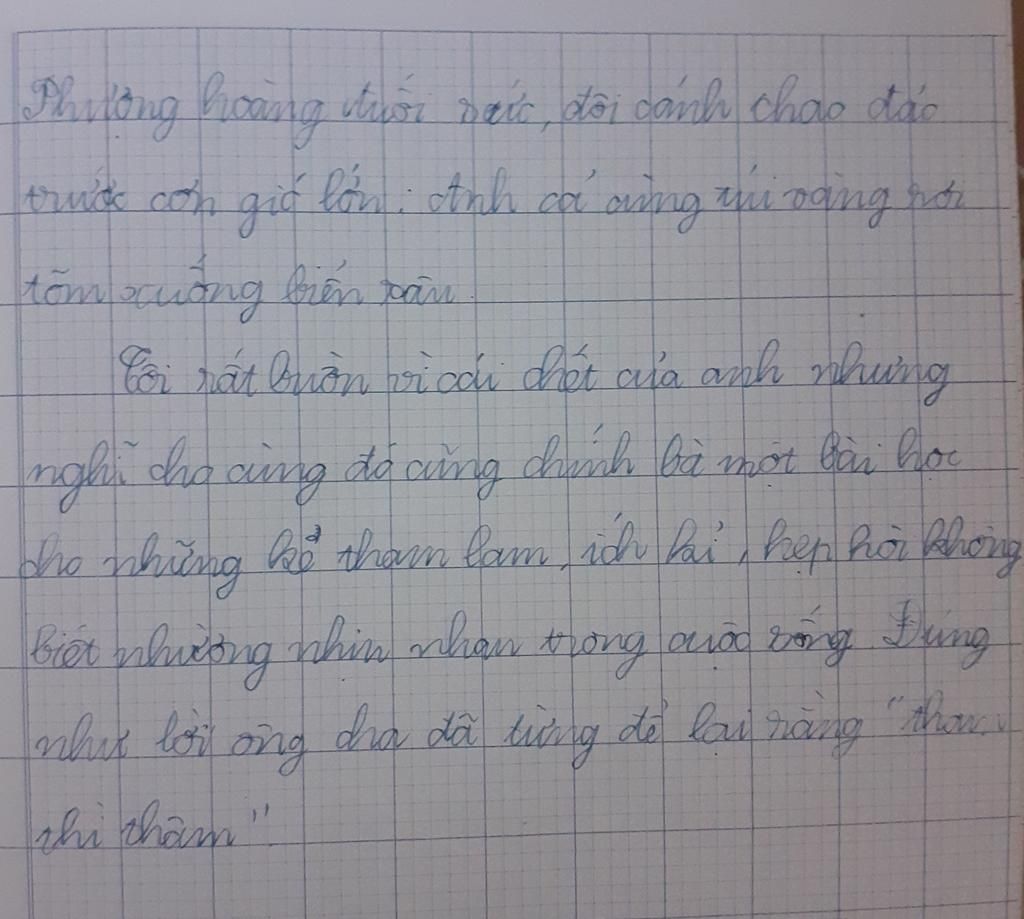 Phượng hoàng đuối sức, đôi cánh chao đảo
trước cơn gió lớn. Anh cả cùng túi vàng rơi
tõm xuống biển sâu.
Tôi rất buồn vì cái chết của anh nhưng
nghĩ cho cùng đó cũng chính là một bài học
cho những kẻ tham lam, ích kỉ, hẹp hòi không
biết nhường nhịn nhau trong cuộc sống. Đúng
như lời ông cha đã từng để lại rằng "tham
thì thâm"